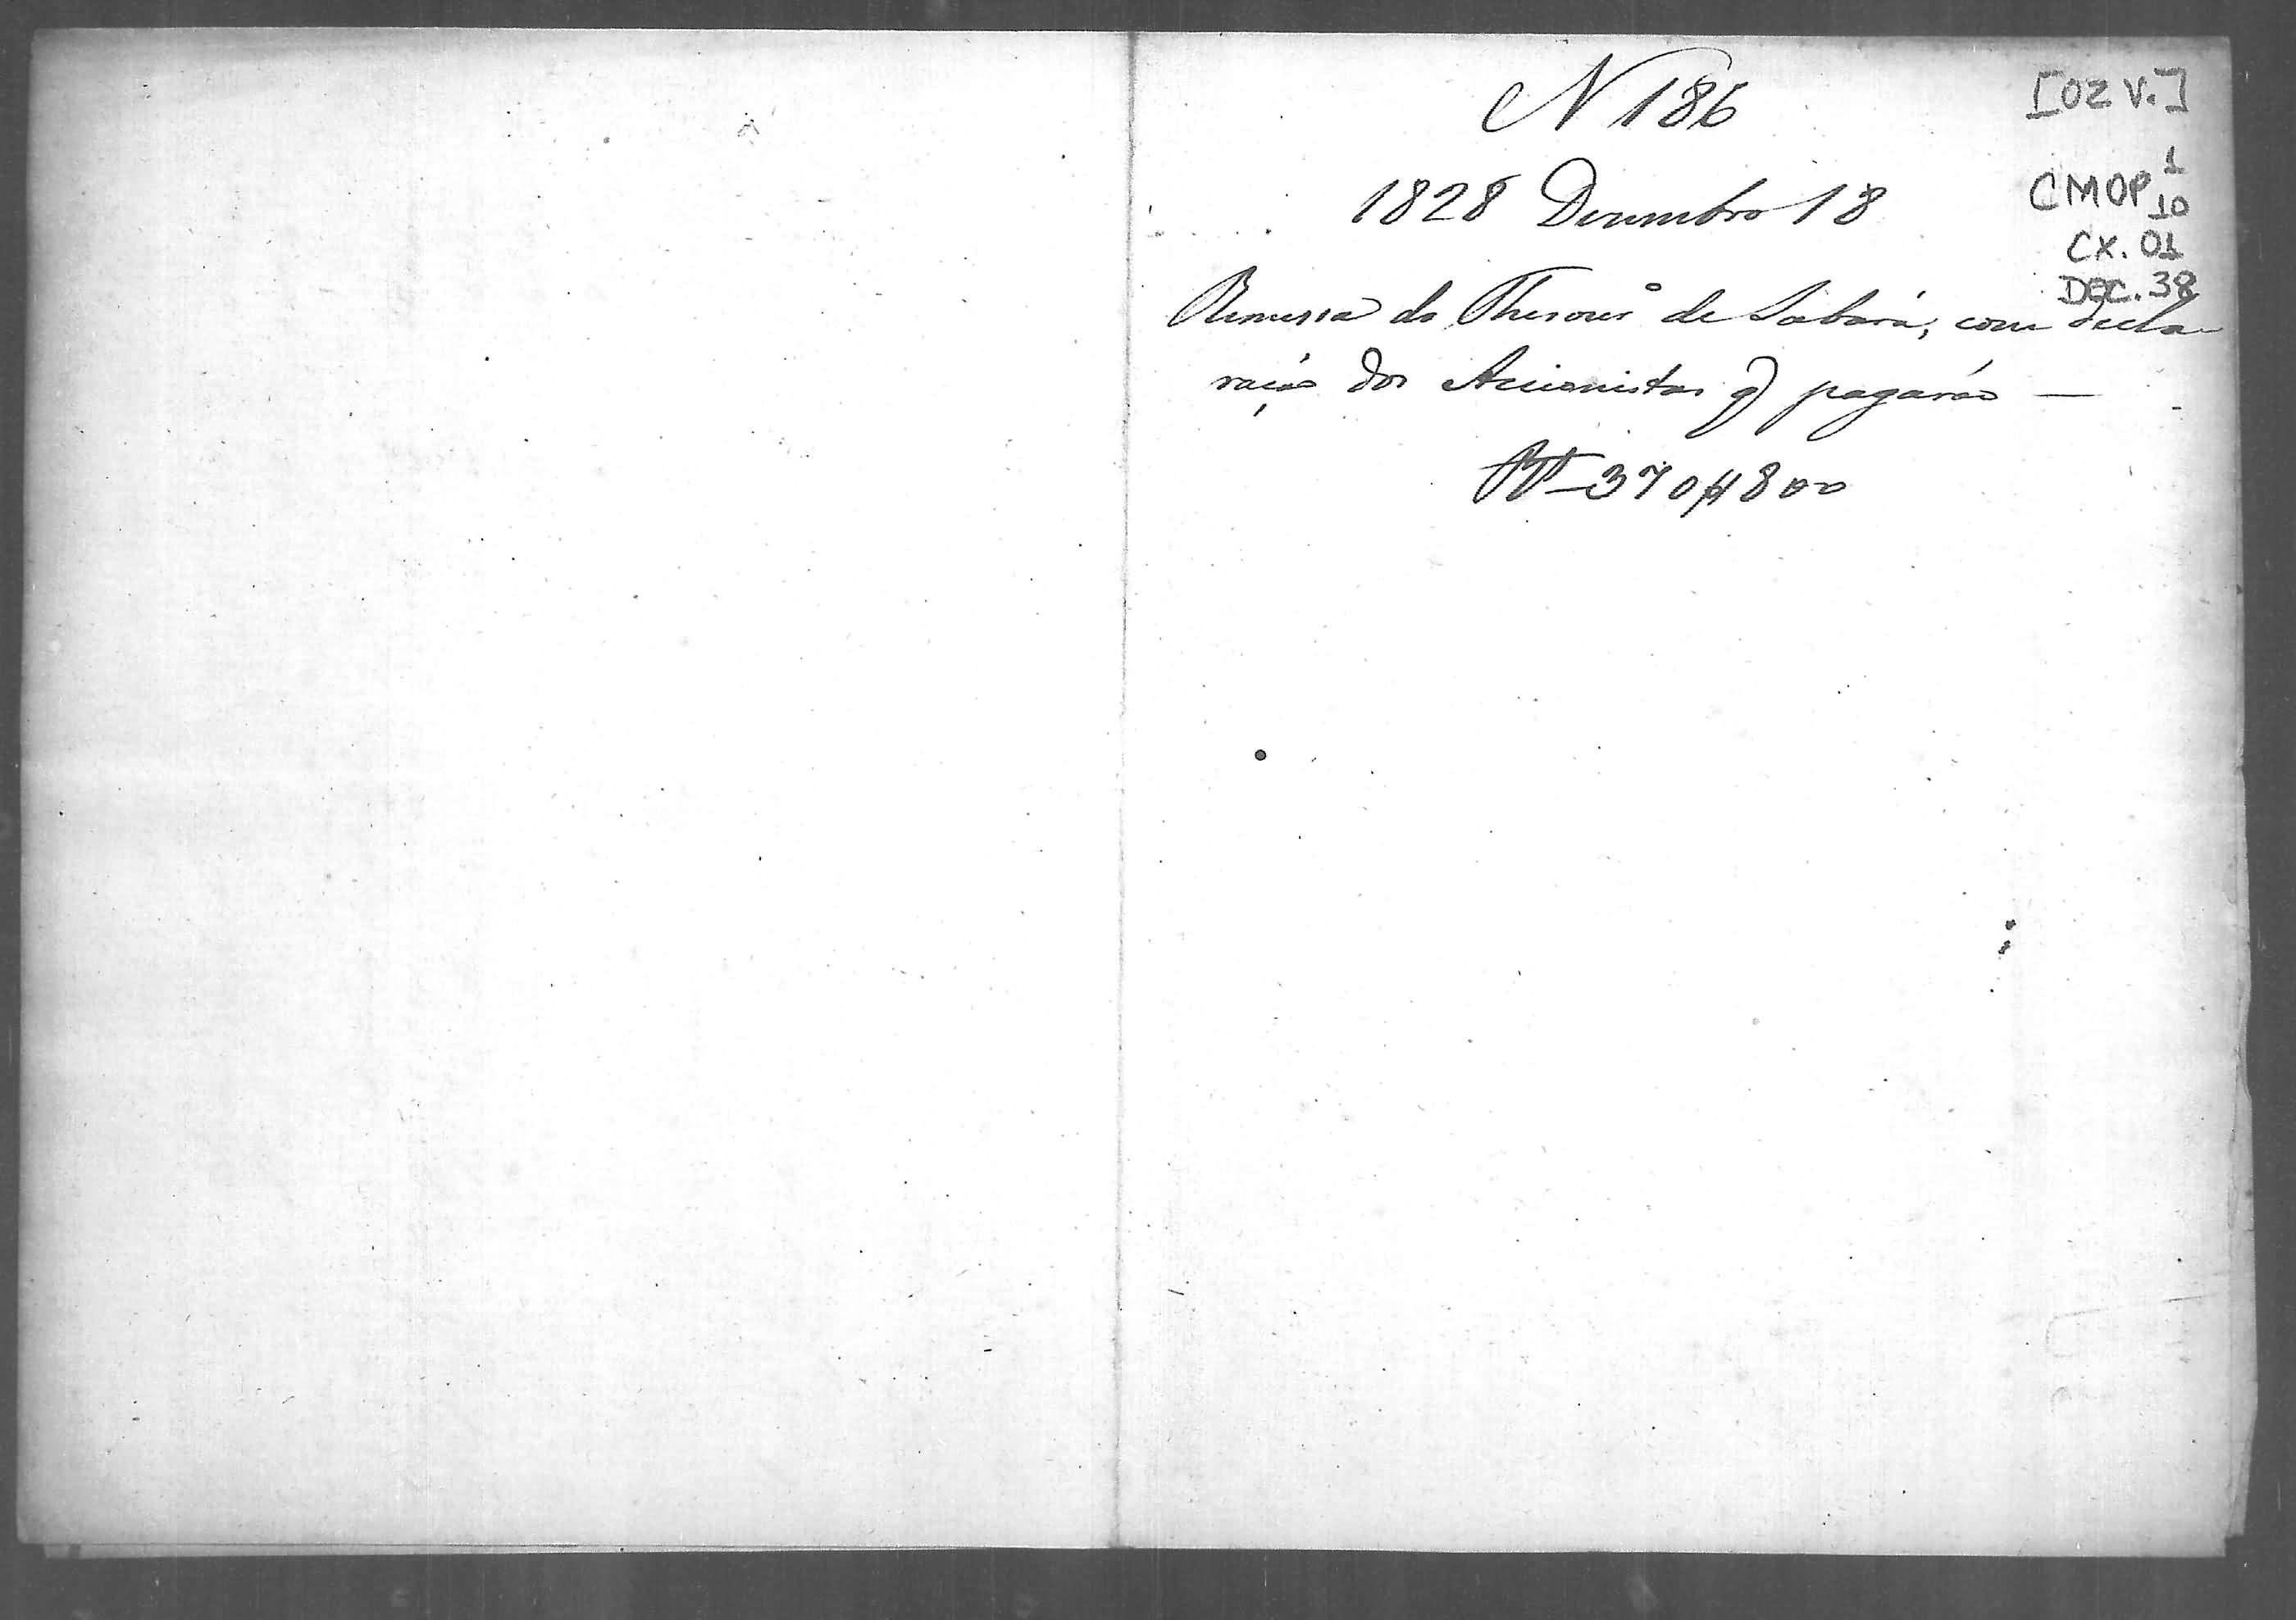 N 186
[02 V.]
1828 Dezembro 18
CMOP 1
10
CX. 01
DOC. 38
Remessa do Thesourº de Sabará, com decla-
ração dos Accionistas q pagarão —
Rs — 370$800